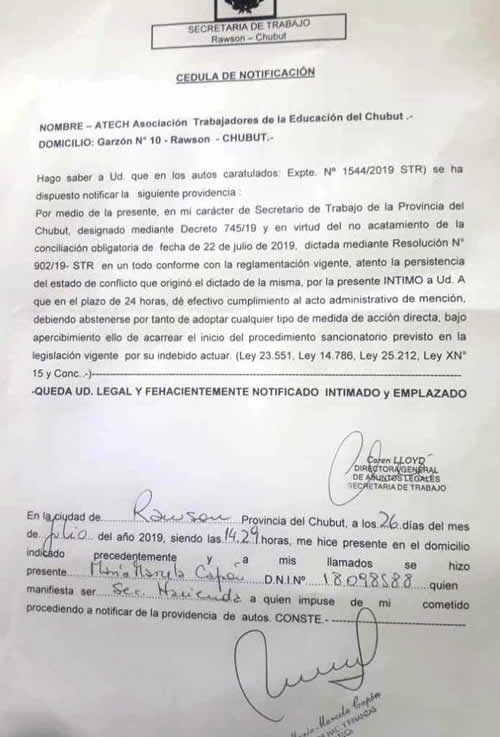 SECRETARIA DE TRABAJO
Rawson – Chubut
CEDULA DE NOTIFICACIÓN
NOMBRE – ATECH Asociación Trabajadores de la Educación del Chubut .-
DOMICILIO: Garzón N° 10 - Rawson - CHUBUT.-
Hago saber a Ud. que en los autos caratulados: Expte. Nº 1544/2019 STR) se ha
dispuesto notificar la siguiente providencia :
Por medio de la presente, en mi carácter de Secretario de Trabajo de la Provincia del
Chubut, designado mediante Decreto 745/19 y en virtud del no acatamiento de la
conciliación obligatoria de fecha de 22 de julio de 2019, dictada mediante Resolución N°
902/19- STR en un todo conforme con la reglamentación vigente, atento la persistencia
del estado de conflicto que originó el dictado de la misma, por la presente INTIMO a Ud. A
que en el plazo de 24 horas, dé efectivo cumplimiento al acto administrativo de mención,
debiendo abstenerse por tanto de adoptar cualquier tipo de medida de acción directa, bajo
apercibimiento ello de acarrear el inicio del procedimiento sancionatorio previsto en la
legislación vigente por su indebido actuar. (Ley 23.551, Ley 14.786, Ley 25.212, Ley XN°
15 y Conc..-)----------
-QUEDA UD. LEGAL Y FEHACIENTEMENTE NOTIFICADO INTIMADO y EMPLAZADO
Caren LLOYD
DIRECTORA GENERAL
DE ASUNTOS LEGALES
SECRETARIA DE TRABAJO
En la ciudad de Rawson Provincia del Chubut, a los 26 días del mes
de julio del año 2019, siendo las 14.29 horas, me hice presente en el domicilio
indicado precedentemente y a mis llamados se hizo
presente María Marcela Capón D.N.I.Nº 18.098.588 quien
manifiesta ser Sec. Hacienda a quien impuse de mi cometido
procediendo a notificar de la providencia de autos. CONSTE.-----------
María Marcela Capón